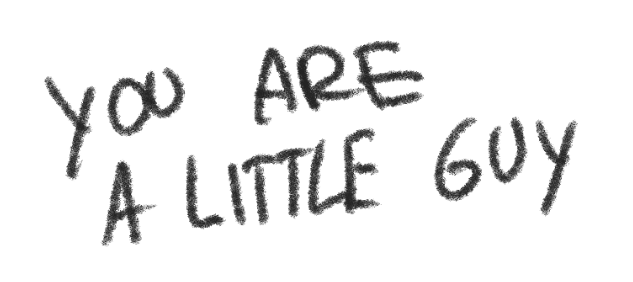 YOU ARE
A LITTLE GUY